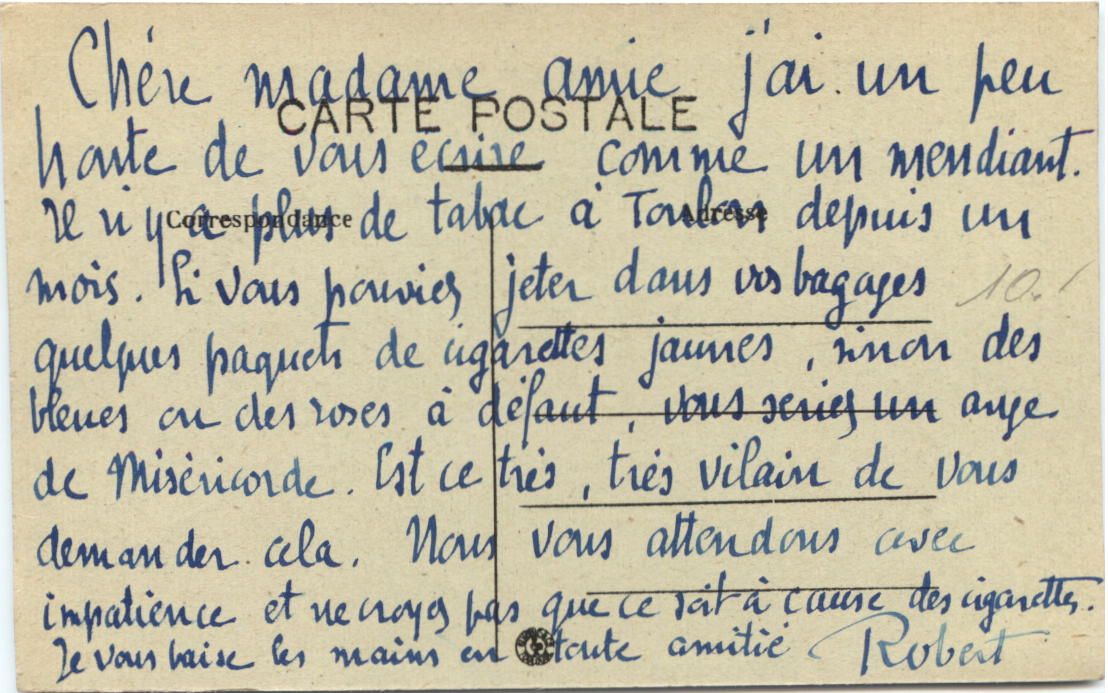 Chère madame amie j'ai un peu
CARTE POSTALE
honte de vous écrire comme un mendiant.
Correspondance
Adresse
Il n'y a plus de tabac à Toulon depuis un
mois. Si vous pouviez jeter dans vos bagages
10.
quelques paquets de cigarettes jaunes, sinon des
bleues ou des roses à défaut, vous seriez un ange
de Miséricorde. Est ce très, très vilain de vous
demander cela. Nous vous attendons avec
impatience et ne croyez pas que ce soit à cause des cigarettes.
Je vous baise les mains en toute amitié Robert